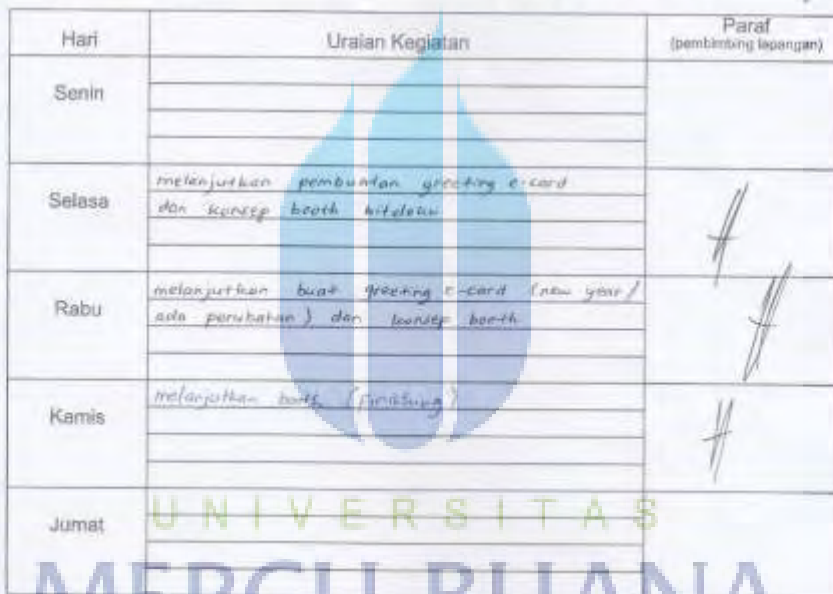 Hari
Uraian Kegiatan
Paraf
(pembimbing lapangan)
Senin
Selasa
melanjutkan pembuatan greeting e-card
dan konsep booth
Rabu
melanjutkan buat greeting e-card (new year/
ada perubahan) dan konsep booth
Kamis
melanjutkan booth (finishing)
Jumat
UNIVERSITAS
MERCU BUANA